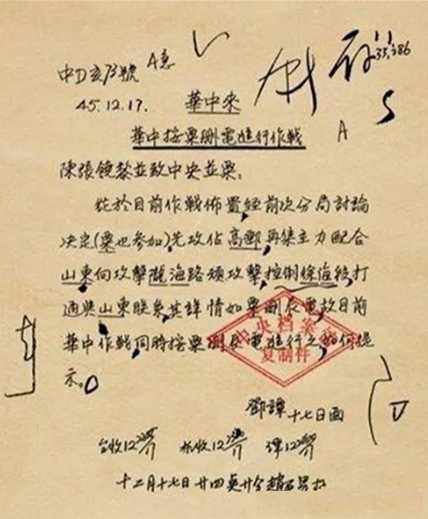 中D亥73號 A急
45.12.17. 華中來
華中按粟刪電進行作戰 A
陳張饒黎並致中央並粟:
從於目前作戰佈置經前次分局討論
决定(粟也参加)先攻佔高郵再集主力配合
山東向攻擊隴海路須攻擊控制徐海後打
通與山東联系其詳情如粟刪辰電故目前
華中作戰同時按粟刪辰電進行之如何提
示。
中央档案
复制件
鄧譚十七日酉
台收12 抄收12 譯12
十二月十七日廿四